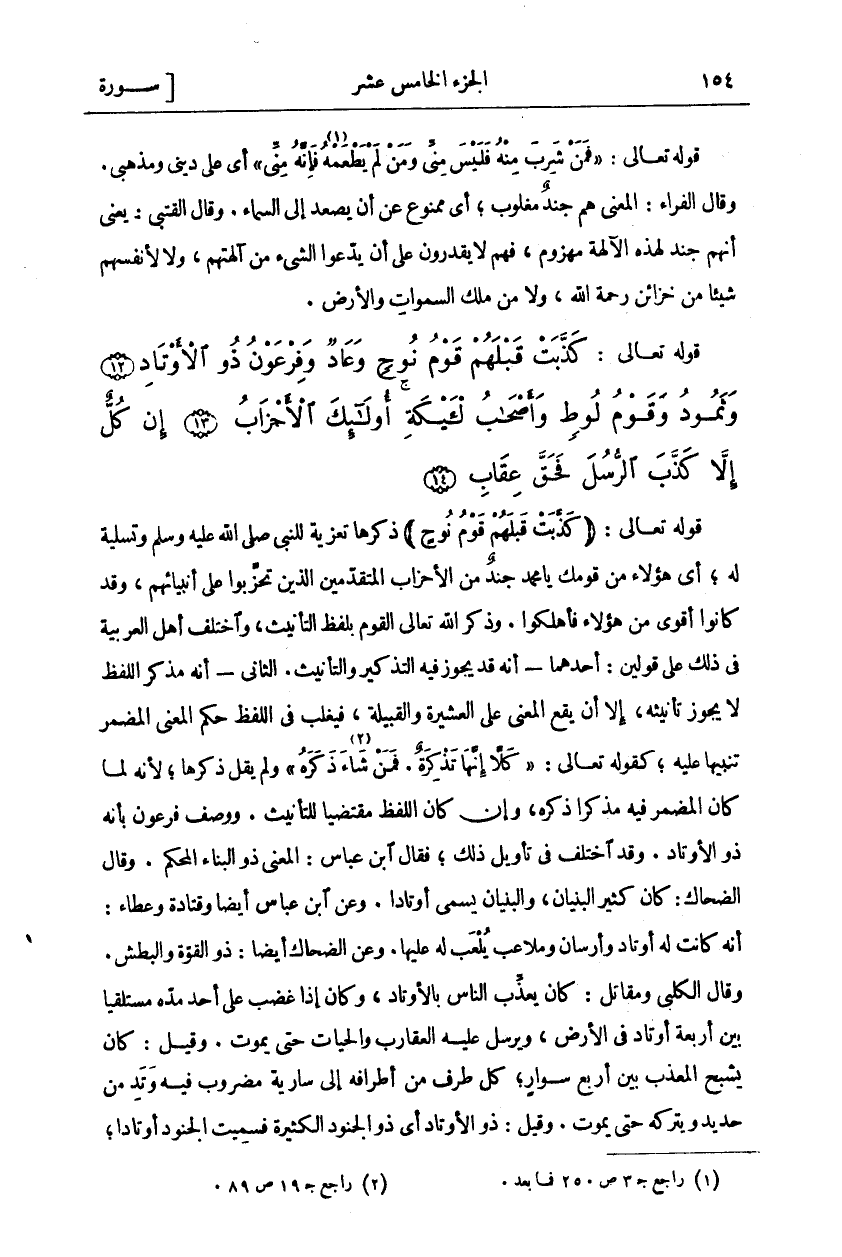 ١٥٤ الجزء الخامس عشر [ ســورة
قوله تعالى : «فَمَنْ شَرِبَ مِنْهُ فَلَيْسَ مِنِّى وَمَنْ لَمْ يَطْعَمْهُ فَإِنَّهُ مِنِّى» (١) أى على دينى ومذهبى .
وقال الفراء : المعنى هم جندٌ مغلوب ؛ أى ممنوع عن أن يصعد إلى السماء . وقال القتبى : يعنى
أنهم جند لهذه الآلهة مهزوم ، فهم لا يقدرون على أن يدّعوا الشىء من آلهتهم ، ولا لأنفسهم
شيئا من خزائن رحمة الله ، ولا من ملك السموات والأرض .
قوله تعالى : كَذَّبَتْ قَبْلَهُمْ قَوْمُ نُوحٍ وَعَادٌ وَفِرْعَوْنُ ذُو ٱلْأَوْتَادِ ﴿١٢﴾
وَثَمُودُ وَقَوْمُ لُوطٍ وَأَصْحَٰبُ لْـَٔيْكَةِ ۚ أُولَٰٓئِكَ ٱلْأَحْزَابُ ﴿١٣﴾ إِن كُلٌّ
إِلَّا كَذَّبَ ٱلرُّسُلَ فَحَقَّ عِقَابِ ﴿١٤﴾
قوله تعالى : ﴿ كَذَّبَتْ قَبْلَهُمْ قَوْمُ نُوحٍ ﴾ ذكرها تعزية للنبى صلى الله عليه وسلم وتسلية
له ؛ أى هؤلاء من قومك يا محمد جندٌ من الأحزاب المتقدّمين الذين تحزّبوا على أنبيائهم ، وقد
كانوا أقوى من هؤلاء فأهلكوا . وذكر الله تعالى القوم بلفظ التأنيث، وٱختلف أهل العربية
فى ذلك على قولين : أحدهما — أنه قد يجوز فيه التذكير والتأنيث. الثانى — أنه مذكر اللفظ
لا يجوز تأنيثه، إلا أن يقع المعنى على العشيرة والقبيلة ، فيغلب فى اللفظ حكم المعنى المضمر
تنبيها عليه ؛ كقوله تعالى : « كَلَّا إِنَّهَا تَذْكِرَةٌ . فَمَنْ شَاءَ ذَكَرَهُ » (٢) ولم يقل ذكرها ؛ لأنه لما
كان المضمر فيه مذكرا ذكره، وإن كان اللفظ مقتضيا للتأنيث . ووصف فرعون بأنه
ذو الأوتاد . وقد ٱختلف فى تأويل ذلك ؛ فقال ٱبن عباس : المعنى ذو البناء المحكم . وقال
الضحاك: كان كثير البنيان، والبنيان يسمى أوتادا . وعن ٱبن عباس أيضا وقتادة وعطاء :
أنه كانت له أوتاد وأرسان وملاعب يُلْعَب له عليها. وعن الضحاك أيضا : ذو القوّة والبطش.
وقال الكلبى ومقاتل : كان يعذّب الناس بالأوتاد ، وكان إذا غضب على أحد مدّه مستلقيا
بين أربعة أوتاد فى الأرض ، ويرسل عليه العقارب والحيات حتى يموت . وقيل : كان
يشبح المعذب بين أربع سوارٍ؛ كل طرف من أطرافه إلى سارية مضروب فيه وَتَد من
حديد ويتركه حتى يموت . وقيل : ذو الأوتاد أى ذو الجنود الكثيرة فسميت الجنود أوتادا ؛
(١) راجع جـ ٣ ص ٢٥٠ فما بعد . (٢) راجع جـ ١٩ ص ٨٩ .